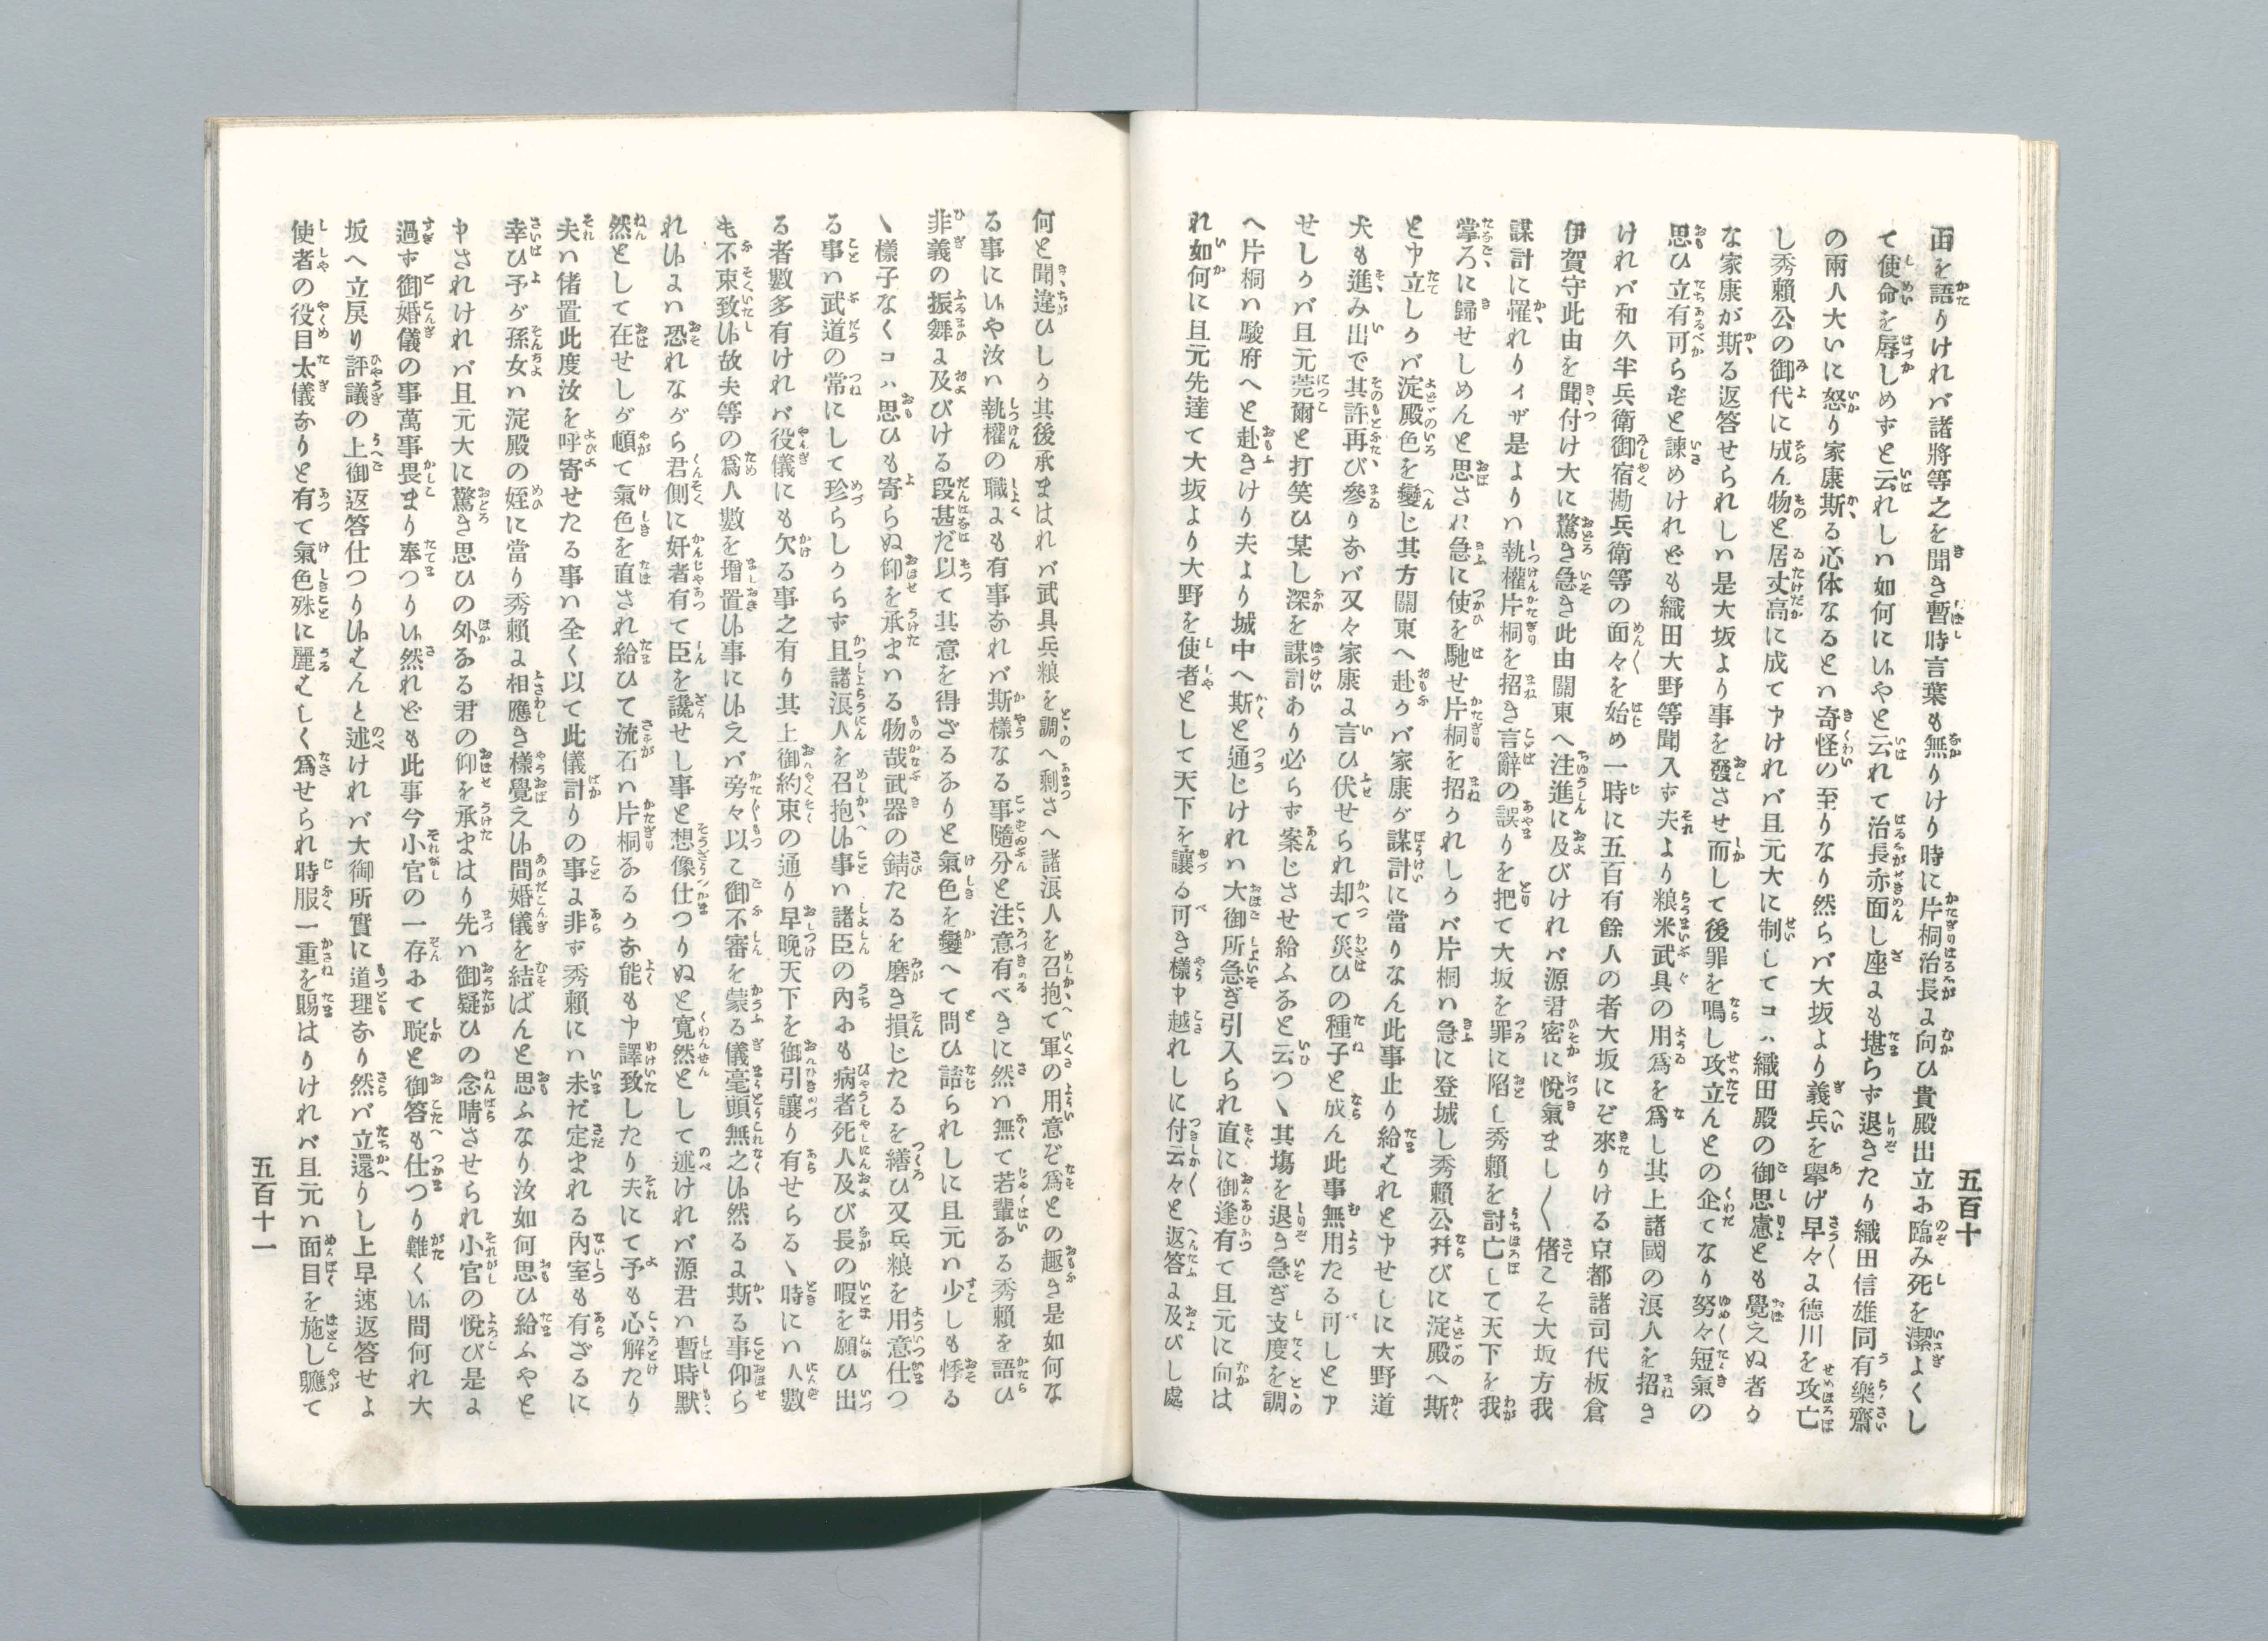 五百十
由を語りければ諸將等之を聞き暫時言葉も無りけり時に片桐治長に向ひ貴殿出立に臨み死を潔よくし
て使命を辱しめずと云れしは如何に候やと云れて治長赤面し座にも堪らず退きたり織田信雄同有樂齋
の兩人大いに怒り家康斯る心体なるとは奇怪の至りなり然らば大坂より義兵を擧げ早々に德川を攻亡
し秀賴公の御代に成ん物と居丈高に成て申ければ且元大に制してコハ織田殿の御思慮とも覺えぬ者か
な家康が斯る返答せられしは是大坂より事を發させ而して後罪を鳴し攻立んとの企てなり努々短氣の
思ひ立有可らずと諫めけれども織田大野等聞入ず夫より粮米武具の用爲を爲し其上諸國の浪人を招き
ければ和久半兵衛御宿勘兵衛等の面々を始め一時に五百有餘人の者大坂にぞ來りける京都諸司代板倉
伊賀守此由を聞付け大に驚き急き此由關東へ注進に及びければ源君密に悅氣まし〳〵偖こそ大坂方我
謀計に罹れりイザ是よりは執權片桐を招き言辭の誤りを把て大坂を罪に陷し秀賴を討亡して天下を我
掌ろに歸せしめんと思され急に使を馳せ片桐を招かれしかば片桐は急に登城し秀賴公幷びに淀殿へ斯
と申立しかば淀殿色を變じ其方關東へ赴かば家康が謀計に當りなん此事止り給はれと申せしに大野道
犬も進み出で其許再び參りなば又々家康に言ひ伏せられ却て災ひの種子と成ん此事無用たる可しとア
せしかば且元莞爾と打笑ひ某し深を謀計あり必らず案じさせ給ふなと云つヽ其塲を退き急ぎ支度を調
へ片桐は駿府へと赴きけり夫より城中へ斯と通じければ大御所急ぎ引入られ直に御逢有て且元に向は
れ如何に且元先達て大坂より大野を使者として天下を讓る可き樣申越れしに付云々と返答に及びし處
何と聞違ひしか其後承まはれば武具兵粮を調へ剩さへ諸浪人を召抱て軍の用意ぞ爲との趣き是如何な
る事に候や汝は執權の職にも有事なれば斯樣なる事隨分と注意有べきに然は無て若輩なる秀賴を語ひ
非義の振舞に及びける段甚だ以て其意を得ざるなりと氣色を變へて問ひ詰られしに且元は少しも悸る
ヽ樣子なくコハ思ひも寄らぬ仰を承まはる物哉武器の錆たるを磨き損じたるを繕ひ又兵粮を用意仕つ
る事は武道の常にして珍らしからず且諸浪人を召抱候事は諸臣の內にも病者死人及び長の暇を願ひ出
る者數多有ければ役儀にも欠る事之有り其上御約束の通り早晩天下を御引讓り有せらるヽ時には人數
も不束致候故夫等の爲人數を增置候事に候えば旁々以て御不審を蒙る儀毫頭無之候然るに斯る事仰ら
れ候よは恐れながら君側に奸者有て臣を讒せし事と想像仕つりぬと寬然として述ければ源君は暫時默
然として在せしが頓て氣色を直され給ひて流石は片桐なるかな能も申譯致したり夫にて予も心解たり
夫は偖置此度汝を呼寄せたる事は全く以て此儀計りの事に非ず秀賴には未だ定まれる內室も有ざるに
幸ひ予が孫女は淀殿の姪に當り秀賴に相應き樣覺え候間婚儀を結ばんと思ふなり汝如何思ひ給ふやと
申されければ且元大に驚き思ひの外なる君の仰を承まはり先は御疑ひの念晴させられ小官の悅び是に
過ず御婚儀の事萬事畏まり奉つり候然れども此事今小官の一存にて聢と御答も仕つり難く候間何れ大
坂へ立戾り評議の上御返答仕つり候はんと述ければ大御所實に道理なり然ば立還りし上早速返答せよ
使者の役目太儀なりと有て氣色殊に麗はしく爲せられ時服一重を賜はりければ且元は面目を施し軈て
五百十一